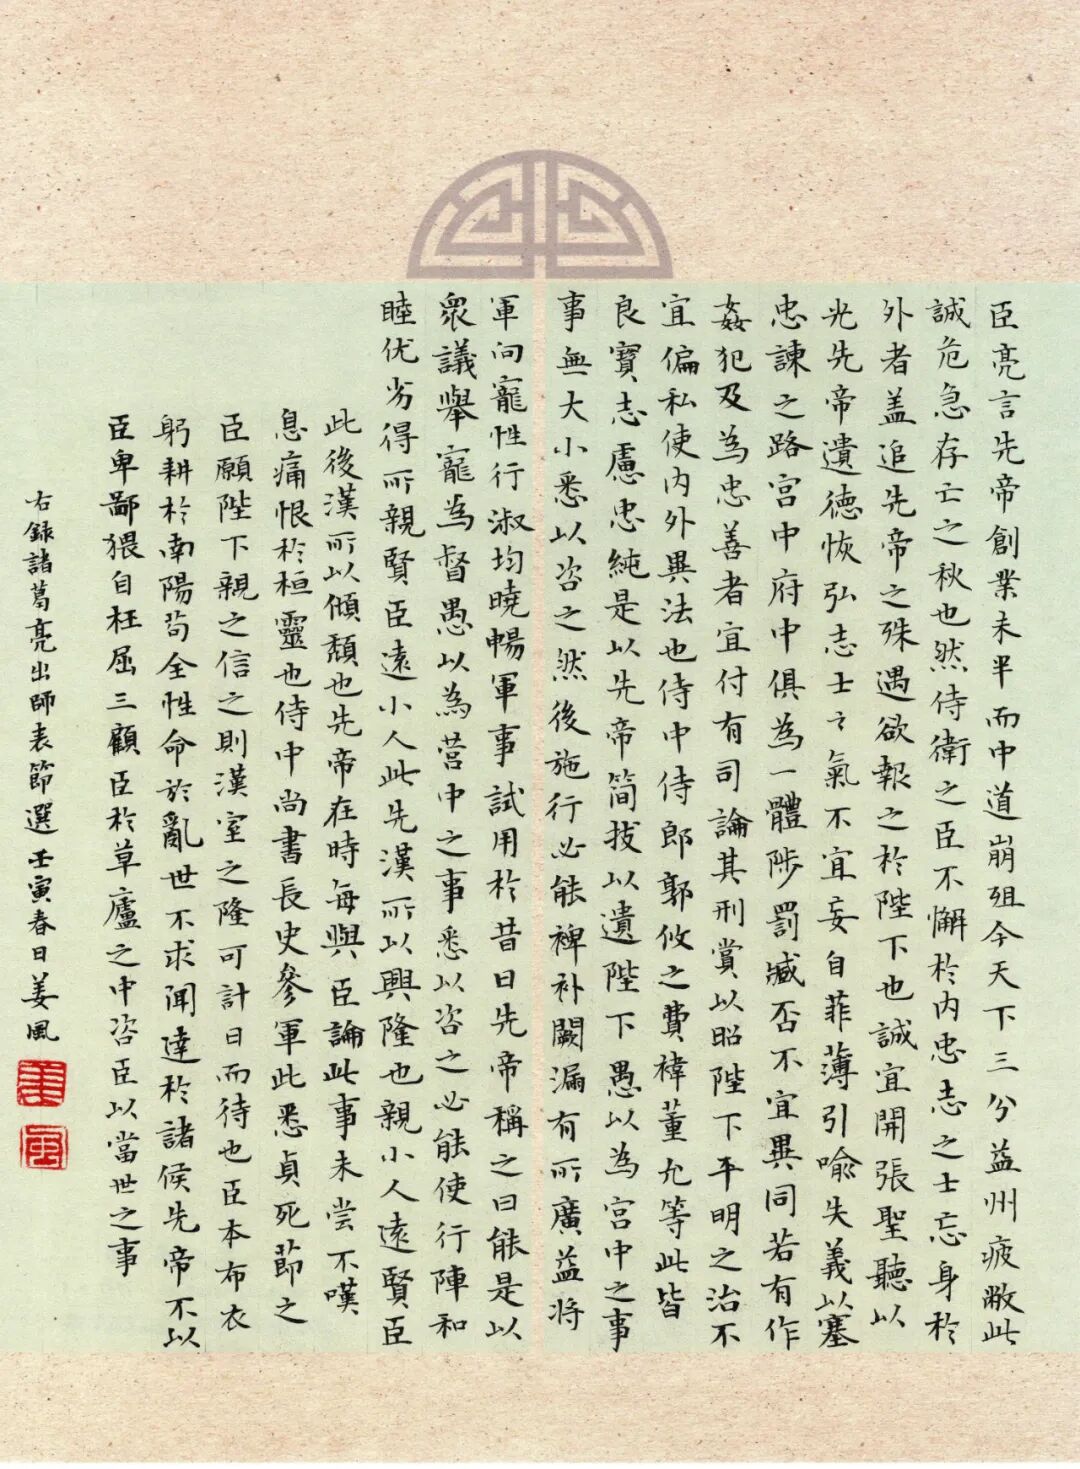 臣亮言先帝創業未半而中道崩殂今天下三分益州疲敝此
誠危急存亡之秋也然侍衛之臣不懈於内忠志之士忘身於
外者盖追先帝之殊遇欲報之於陛下也誠宜開張聖聽以
光先帝遺德恢弘志士之氣不宜妄自菲薄引喻失義以塞
忠諫之路宮中府中俱為一體陟罰臧否不宜異同若有作
姦犯及為忠善者宜付有司論其刑賞以昭陛下平明之治不
宜偏私使内外異法也侍中侍郎郭攸之費禕董允等此皆
良實志慮忠純是以先帝简拔以遺陛下愚以為宮中之事
事無大小悉以咨之然後施行必能裨补闕漏有所廣益将
軍向寵性行淑均曉暢軍事試用於昔日先帝稱之曰能是以
衆議舉寵為督愚以為營中之事悉以咨之必能使行陣和
睦优劣得所親賢臣遠小人此先漢所以興隆也親小人遠賢臣
此後漢所以傾頹也先帝在時每與臣論此事未嘗不嘆
息痛恨於桓靈也侍中尚書長史參軍此悉貞死節之
臣願陛下親之信之則漢室之隆可計日而待也臣本布衣
躬耕於南陽苟全性命於亂世不求聞達於諸侯先帝不以
臣卑鄙猥自枉屈三顧臣於草廬之中咨臣以當世之事
右錄諸葛亮出師表節選壬寅春日姜風
姜
風